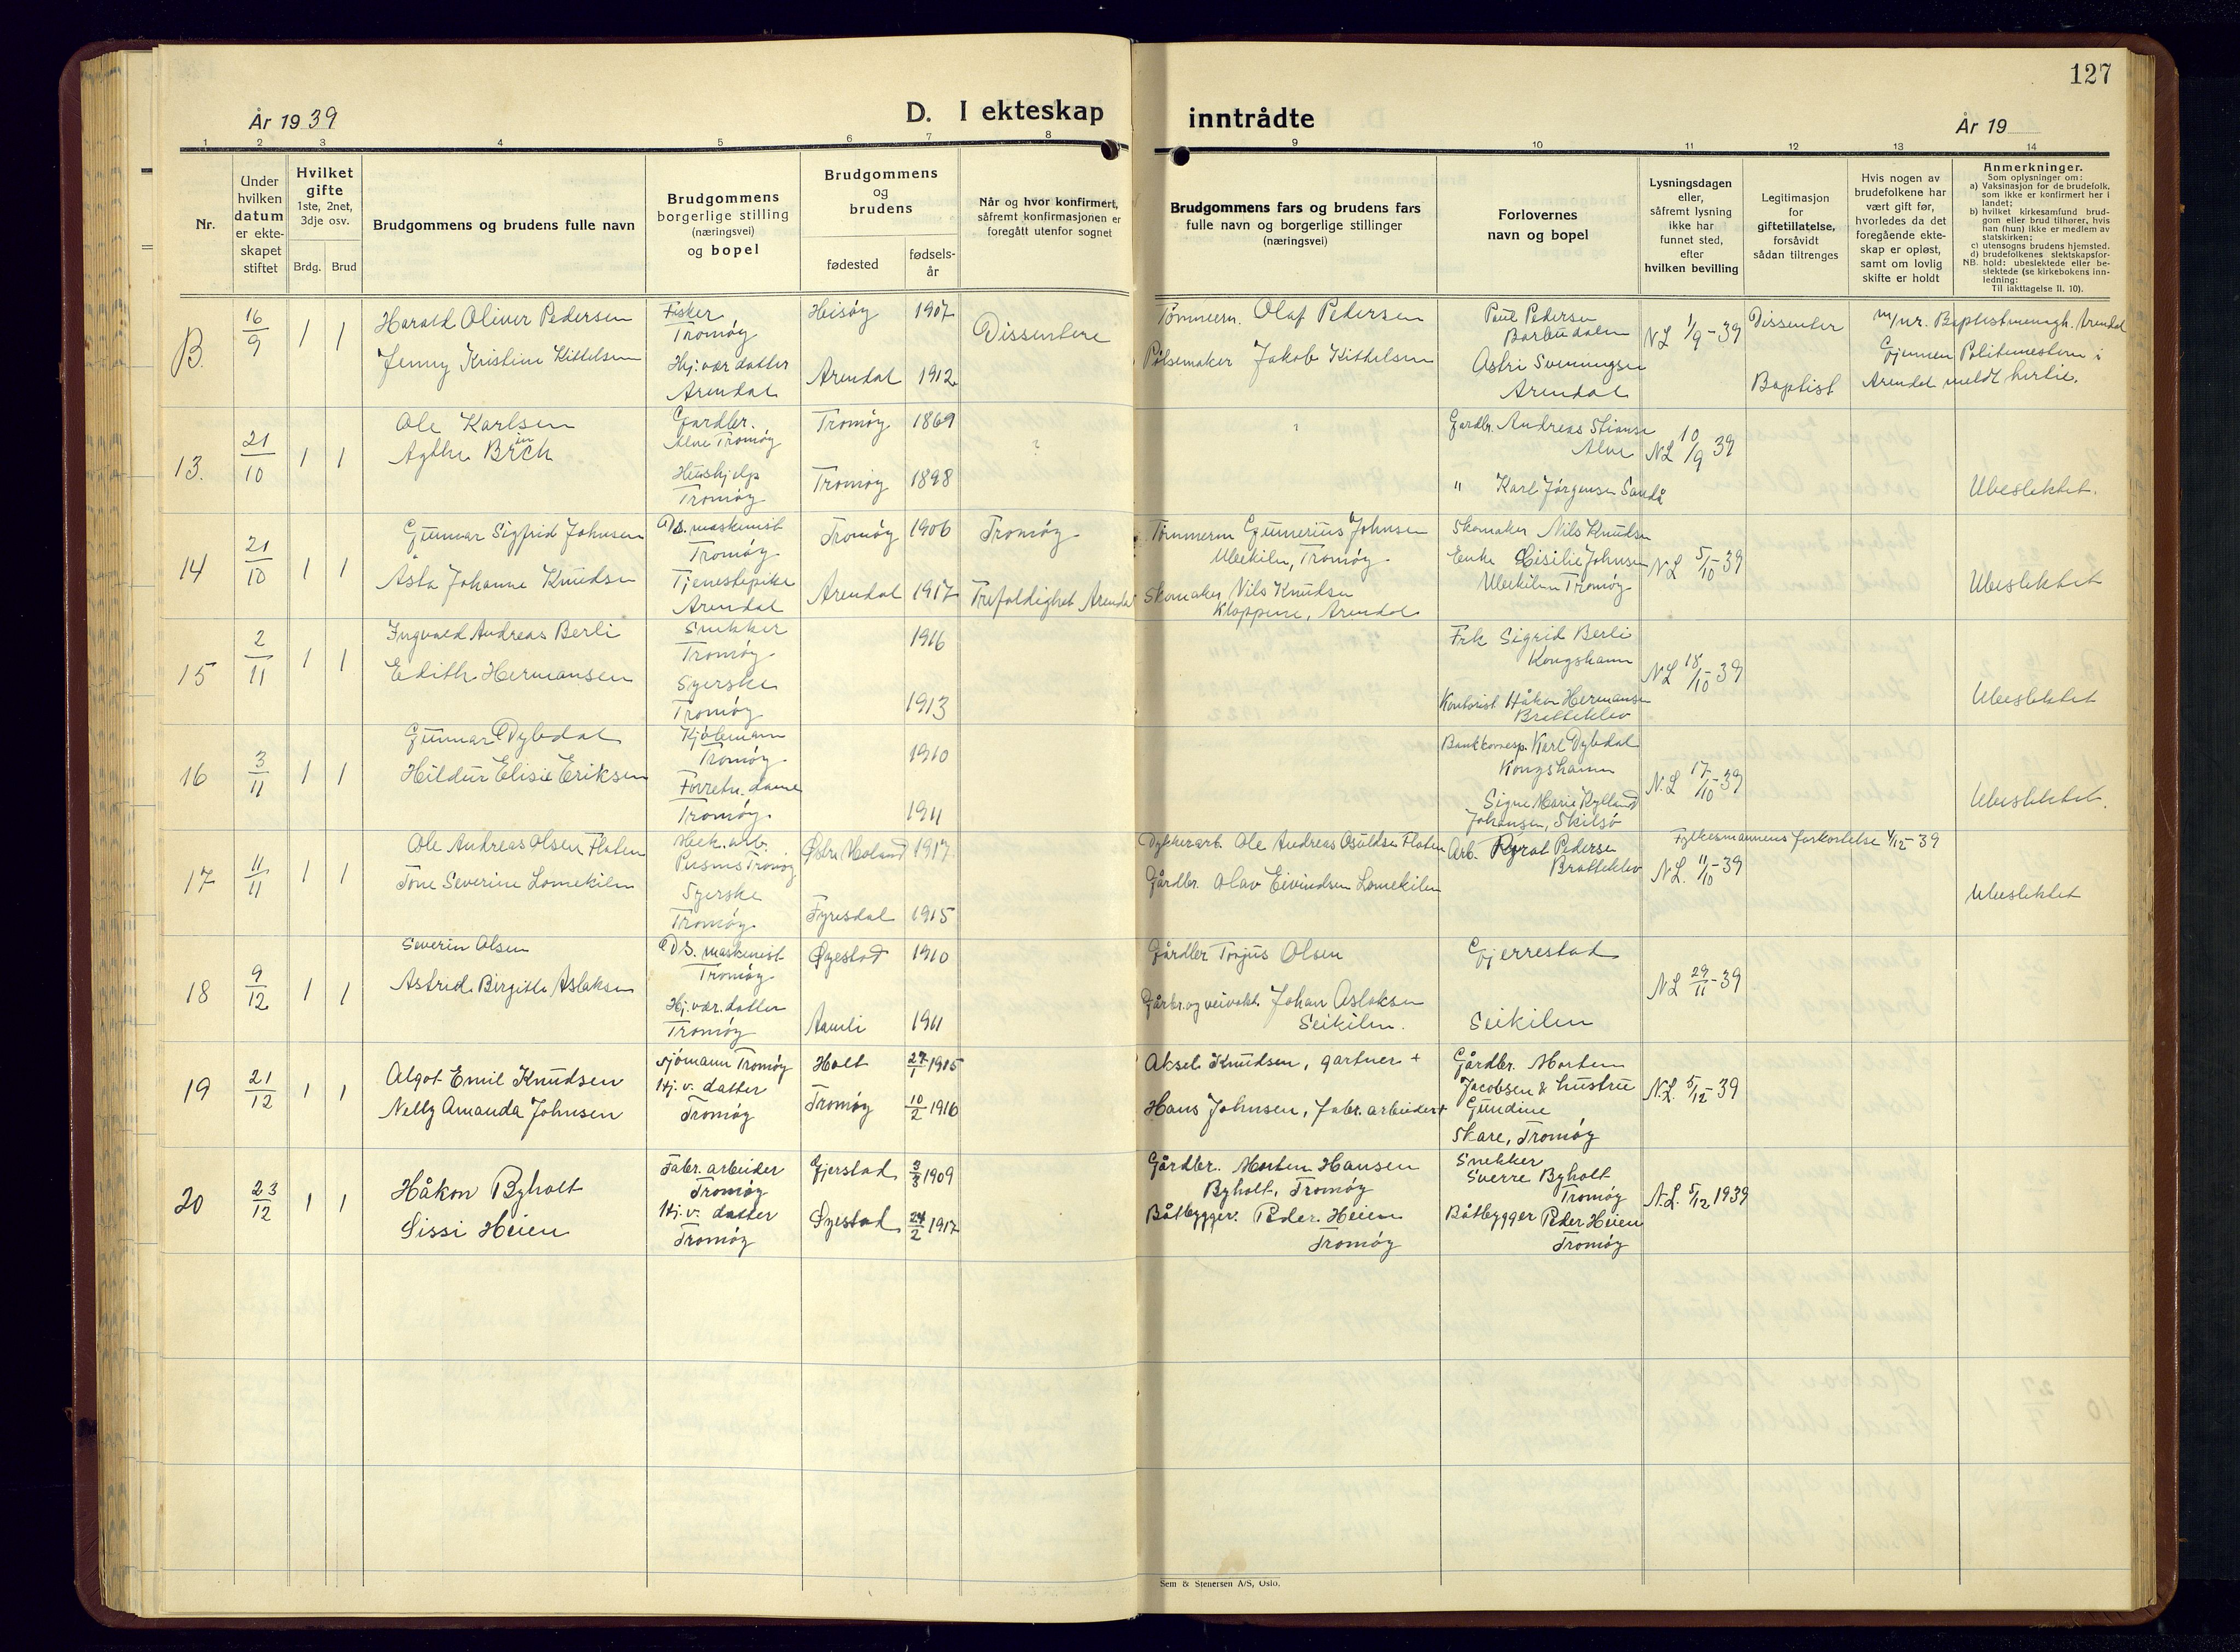 127
År 1939
D. I ekteskap inntrådte
År 19
1 2 3 4 5 6 7 8 9 10 11 12 13 14
Nr.
Under
hvilken
datum
er ekte-
skapet
stiftet
Hvilket
gifte
1ste, 2net,
3dje osv.
Brdg. Brud
Brudgommens og brudens fulle navn
Brudgommens
borgerlige stilling
(næringsvei)
og bopel
Brudgommens
og
brudens
fødested
fødsels-
år
Når og hvor konfirmert,
såfremt konfirmasjonen er
foregått utenfor sognet
Brudgommens fars og brudens fars
fulle navn og borgerlige stillinger
(næringsvei)
Forlovernes
navn og bopel
Lysningsdagen
eller,
såfremt lysning
ikke har
funnet sted,
efter
hvilken bevilling
Legitimasjon
for
giftetillatelse,
forsåvidt
sådan tiltrenges
Hvis nogen av
brudefolkene har
vært gift før,
hvorledes da det
foregående ekte-
skap er opløst,
samt om lovlig
skifte er holdt
Anmerkninger.
Som oplysninger om:
a) Vaksinasjon for de brudefolk,
som ikke er konfirmert her i
landet;
b) hvilket kirkesamfund brud-
gom eller brud tilhører, hvis
han (hun) ikke er medlem av
statskirken;
c) utensogns brudens hjemsted.
d) brudefolkenes slektskapsfor-
NB. hold: ubeslektede eller be-
slektede (se kirkebokens inn-
ledning:
Til iakttagelse II. 10).
B. 16/9 1 1
Harald Oliver Pedersen
Jenny Kristine Kittelsen
Fisker
Tromøy
Hj. vær. datter
Arendal
Heisøy 1907
Arendal 1912
Dissentere
Tømmerm. Olaf Pedersen
Pølsemaker Jakob Kittelsen
Paul Pedersen
Barbudalen
Astri Svenningsen
Arendal
N L 1/9-39
Dissenter
Baptist
m/nr. Baptistmenigh. Arendal
Gjennem Politimesteren i
Arendal meldt hertil.
13. 21/10 1 1
Ole Karlsen
Agthe Birch
Gardbr.
Alve Tromøy
Hushjelp
Tromøy
Tromøy 1869
Tromøy 1898
?
Gardbr. Andreas Stiansen
Alve
" Karl Jørgensen Sandå
N L 10/9 39
Ubeslektet.
14 21/10 1 1
Gunnar Sigfrid Johnsen
Åsta Johanne Knudsen
Ds. maskinist
Tromøy
Tjenestepike
Arendal
Tromøy 1906 Tromøy
Arendal 1917 Trefoldighet Arendal
Tømmerm Gunerius Johnsen
Ubekilen, Tromøy
Skomaker Nils Knudsen
Kloppene, Arendal
Skomaker Nils Knudsen
Enke Cisilie Johnsen
Ubekilen Tromøy
N L 5/10-39
Ubeslektet
15 2/11 1 1
Ingvald Andreas Berli
Edith Hermansen
Snekker
Tromøy
Syerske
Tromøy
1916
1913
Frk Sigrid Berli
Kongshamn
Kontorist Håkon Hermansen
Bratteklev
N L 18/10-39
Ubeslektet
16 3/11 1 1
Gunnar Dybdal
Hildur Elisie Eriksen
Kjøbmann
Tromøy
Forretn. dame
Tromøy.
1910
1911
Bankkorresp. Karl Dybdal
Kongshamn
Signe Marie Kylland
Johansen, Skilsø
N. L 17/10-39
Ubeslektet.
17 11/11 1 1
Ole Andreas Olsen Flaten
Tone Severine Lomekilen
Mek. arb.
Pusnes Tromøy
Syerske
Tromøy
Østre Moland 1917
Fyresdal 1915
Dykkerarb. Ole Andreas Osuldsen Flaten
Gårdbr. Olav Eivindsen Lomekilen
Arb. Pedersen
Bratteklev
Fylkesmannens forkortelse 4/12-39
N L. 11/10-39
Ubeslektet
18 9/12 1 1
Severin Olsen
Astrid Birgitte Aslaksen
Ds. maskinist
Tromøy
Hj. vær. datter
Tromøy
Øyestad 1910
Aamli 1911
Gårdbr Torjus Olsen
Gårbr. og veivokt. Johan Aslaksen
Seikilen.
Gjerrestad
Seikilen
N L 29/11-39
19 21/12 1 1
Algot Emil Knudsen
Nelly Amanda Johnsen
Sjømann Tromøy
Hj. v. datter
Tromøy
Holt 27/1 1915
Tromøy 10/2 1916
Aksel Knudsen, gartner +
Hans Johnsen, fabr. arbeider +
Gårdbr. Morten
Jacobsen & hustru
Gundine
Skare, Tromøy
N. L. 5/12-39
20 23/12 1 1
Håkon Byholt
Sissi Heien
Fabr. arbeider
Tromøy
Hj. v. datter
Tromøy
Gjerstad 3/3 1909
Øyestad 24/2 1917
Gårdbr. Morten Hansen
Byholt, Tromøy
Båtbygger. Peder Heien
Tromøy
Snekker
Sverre Byholt
Tromøy
Båtbygger Peder Heien
Tromøy
N. L. 5/12 1939
Sem & Stenersen A/S, Oslo.